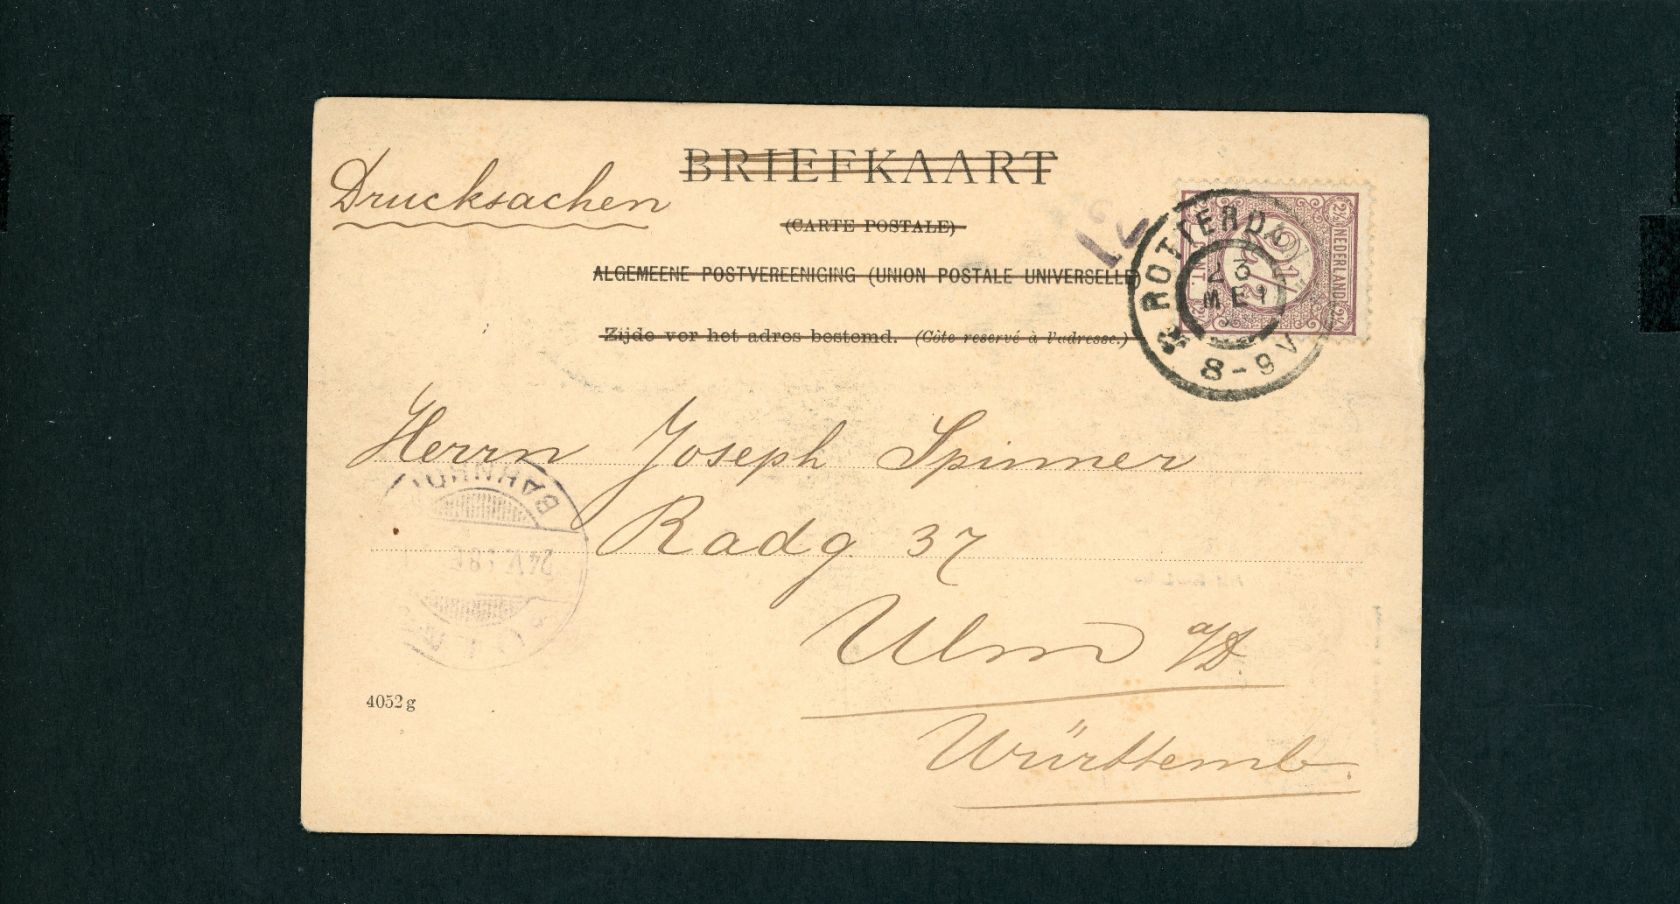 Drucksachen
BRIEFKAART
(CARTE POSTALE)
ALGEMEENE POSTVEREENIGING (UNION POSTALE UNIVERSELLE)
Zijde vor het adres bestemd. (Côte reservé à l'adresse.)
NEDERLAND
2½
ROTTERDA
23
MEI
8-9V
Herrn Joseph Spinner
Radg 37
Ulm a/D.
Württemb.
BAHNHO
24 V
4052 g